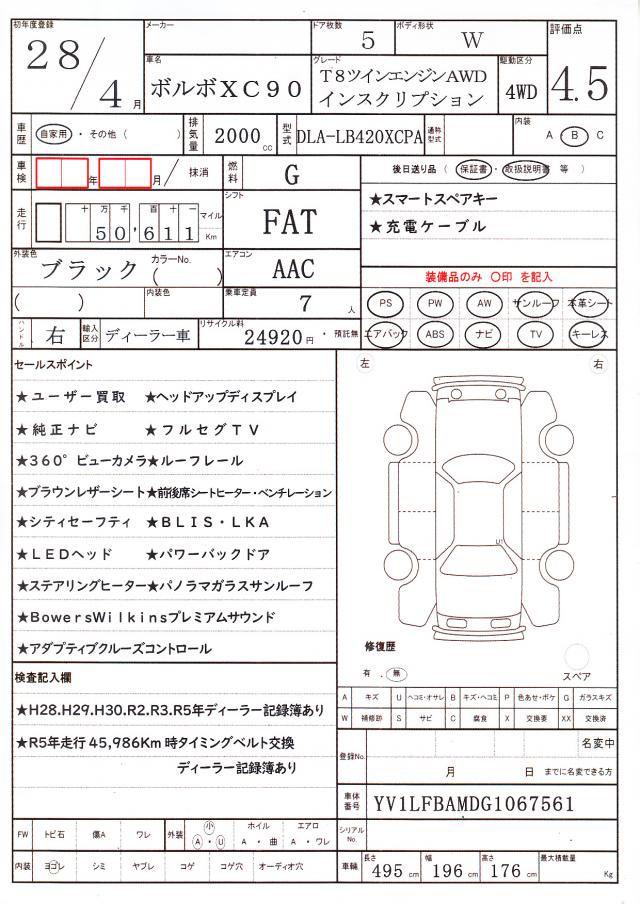 初年度登録 メーカー ドア枚数 ボディ形状 評価点
28/4月 5 W 4.5
車名 グレード 駆動区分
ボルボXC90 T8ツインエンジンAWD 4WD
インスクリプション
車歴 自家用・その他( ) 排気量 2000cc 型式 DLA-LB420XCPA 通称型式 内装 A・B C
車検 年 月/ 抹消 燃料 G 後日送り品( 保証書・取扱説明書 等 )
走行 十 万 千 百 十 一 マイル Km シフト ★スマートスペアキー
50,611 FAT ★充電ケーブル
外装色 カラーNo. エアコン
ブラック ( ) AAC 装備品のみ 〇印 を記入
( ) 内装色 乗車定員 7人 PS PW AW サンルーフ 本革シート
ハンドル 右 輸入区分 ディーラー車 リサイクル料 24920円・預託無 エアバック ABS ナビ TV キーレス
セールスポイント 左 右
★ユーザー買取 ★ヘッドアップディスプレイ
★純正ナビ ★フルセグTV
★360°ビューカメラ★ルーフレール
★ブラウンレザーシート★前後席シートヒーター・ベンチレーション
★シティセーフティ ★BLIS・LKA
U1
★LEDヘッド ★パワーバックドア
★ステアリングヒーター★パノラマガラスサンルーフ
★BowersWilkinsプレミアムサウンド
★アダプティブクルーズコントロール
修復歴
有 . 無 スペア
検査記入欄
A キズ U ヘコミ・オサレ B キズ・ヘコミ P 色あせ・ボケ G ガラスキズ
W 補修跡 S サビ C 腐食 X 交換要 XX 交換済
★H28.H29.H30.R2.R3.R5年ディーラー記録簿あり
★R5年走行45,986Km時タイミングベルト交換
ディーラー記録簿あり
登録No. 名変中
月 日 までに名変できる方
車体番号 YV1LFBAMDG1067561
FW トビ石 傷A ワレ 外装 小 A・U ホイル A・曲 エアロ A・ワレ シリアルNo.
内装 ヨゴレ シミ ヤブレ コゲ コゲ穴 オーディオ穴 車輛 長さ 495cm 幅 196cm 高さ 176cm 最大積載量 Kg